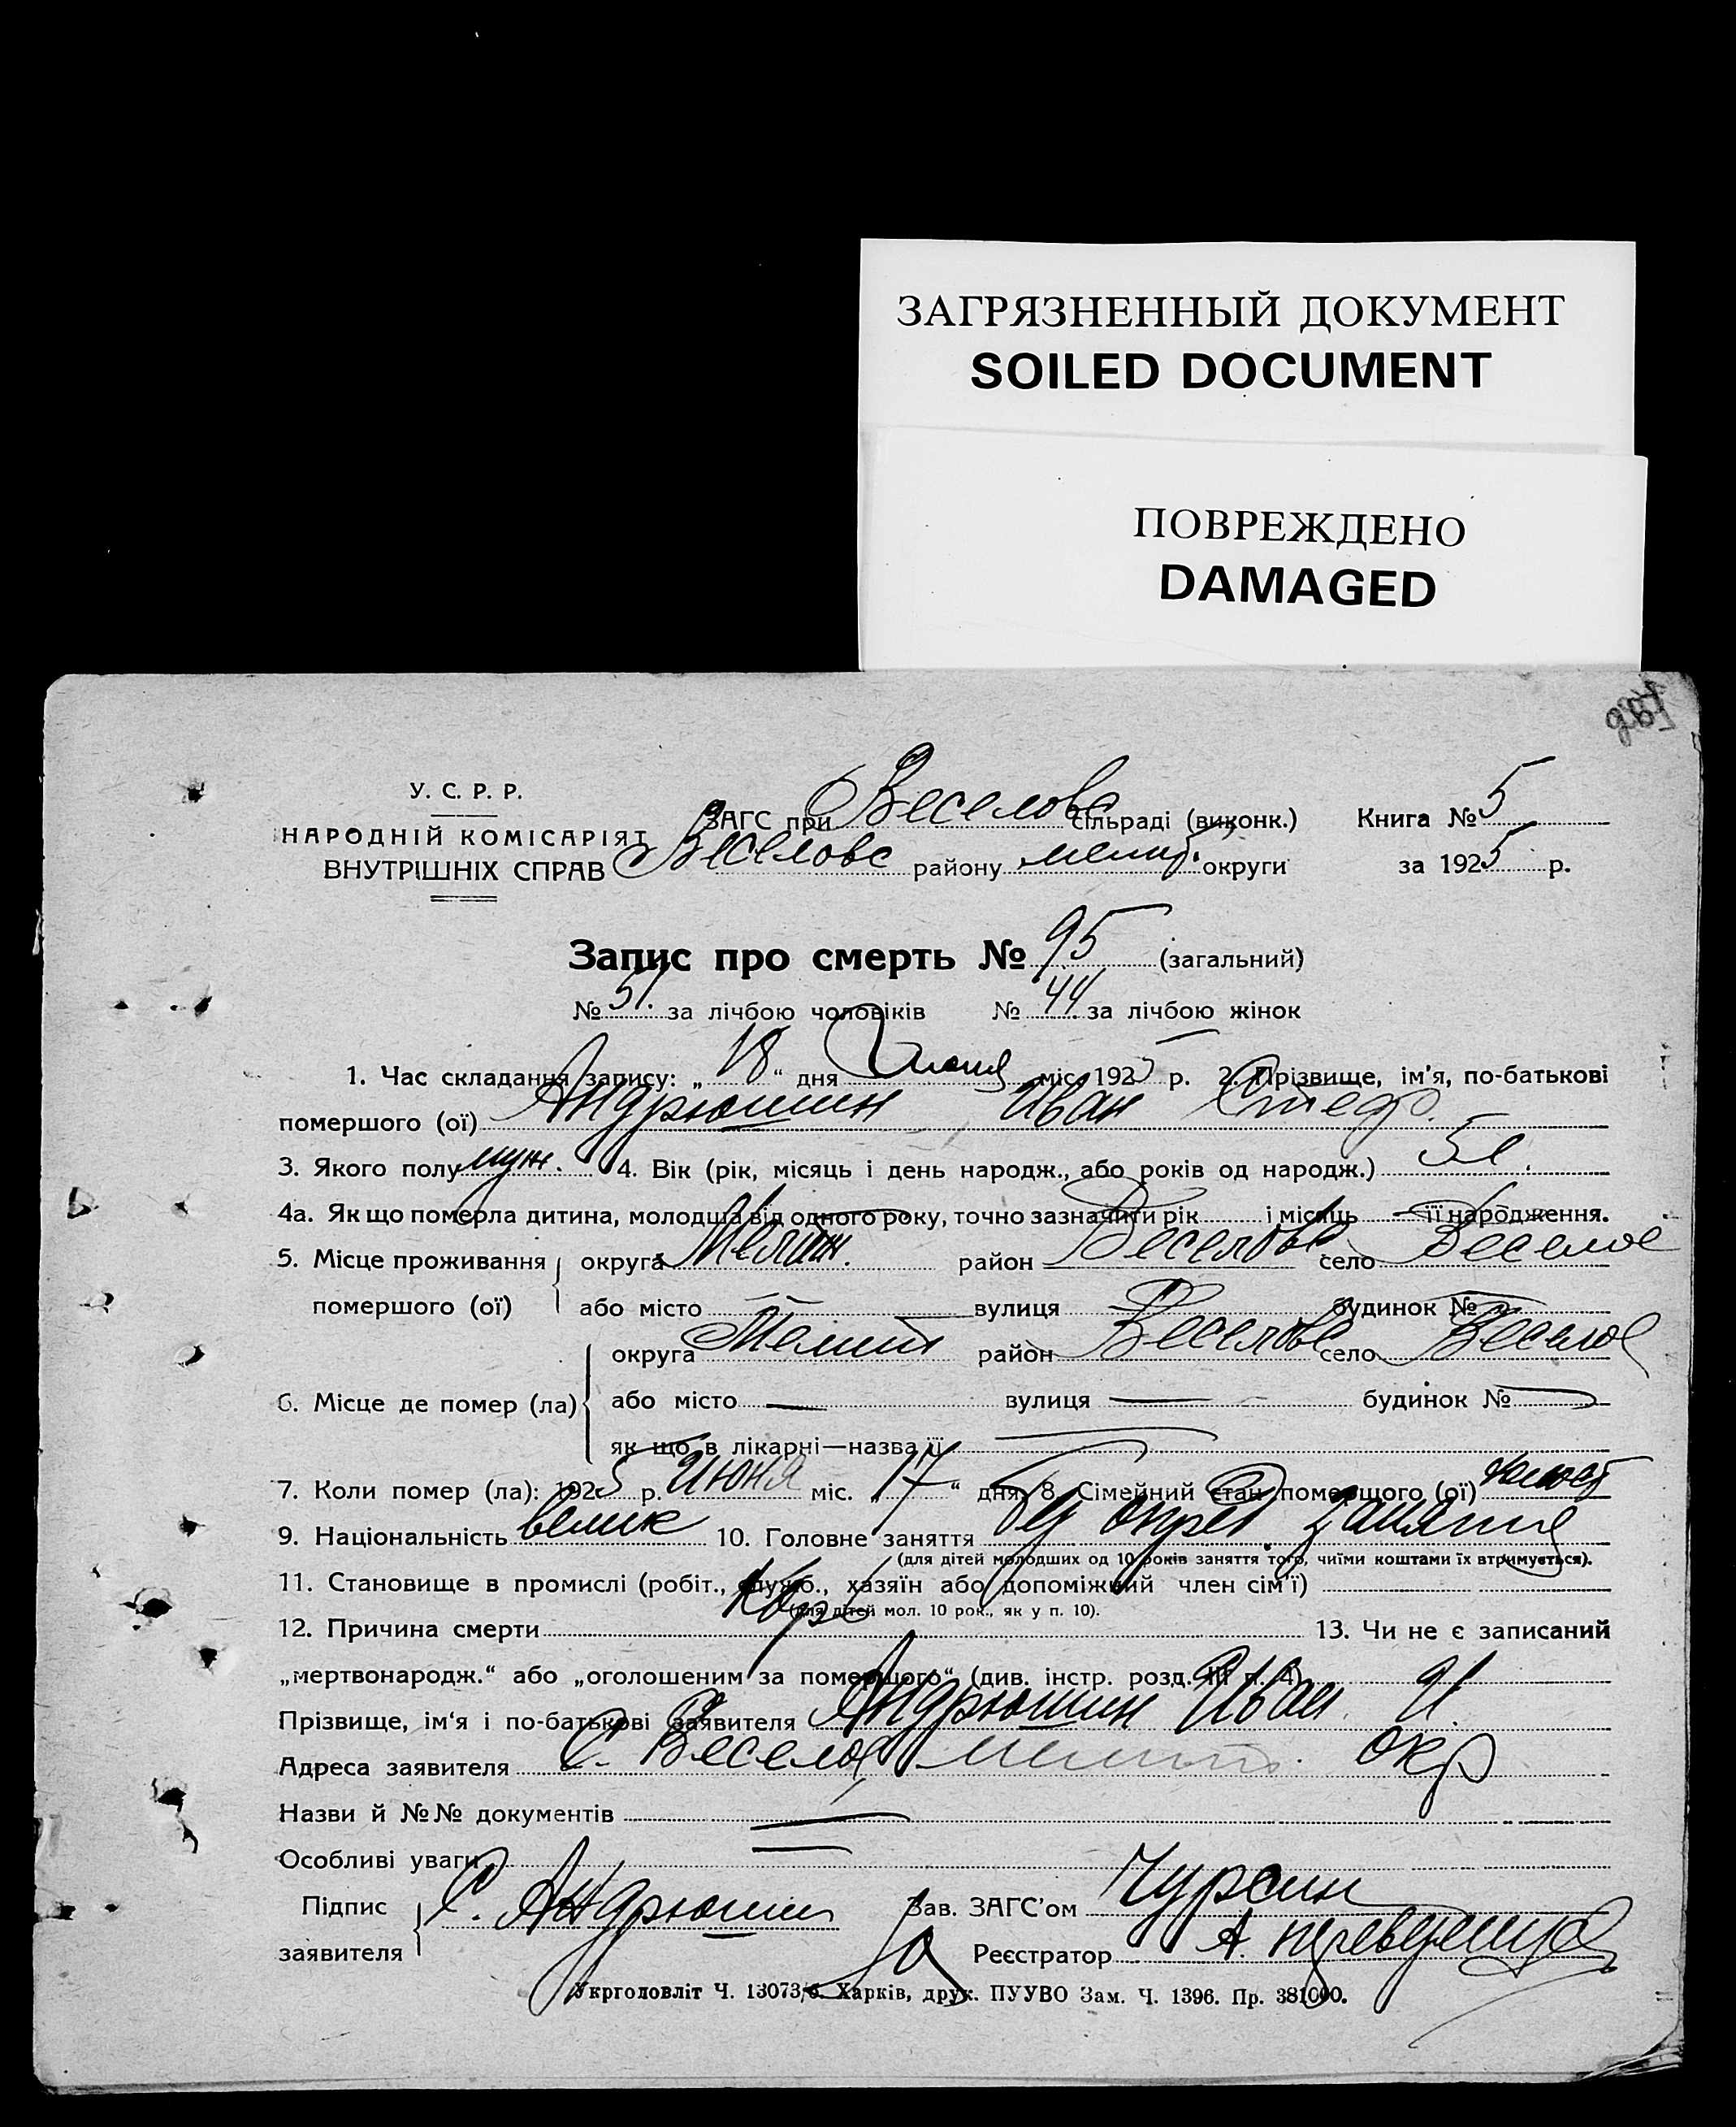 ЗАГРЯЗНЕННЫЙ ДОКУМЕНТ
SOILED DOCUMENT
ПОВРЕЖДЕНО
DAMAGED
У. С. Р. Р.
НАРОДНІЙ КОМІСАРІЯТ
ВНУТРІШНІХ СПРАВ
ЗАГС при Веселовс сільраді (виконк.) Книга № 5
Веселовс району мелит. округи за 1925 р.
Запис про смерть № 95 (загальний)
№ 51. за лічбою чоловіків № 44 за лічбою жінок
1. Час складання запису: „18“ дня Июня міс. 1925 р. 2. Прізвище, ім'я, по-батькові
помершого (ої) Андрюшин Иван
3. Якого полу муж. 4. Вік (рік, місяць і день народж., або років од народж.)
4а. Як що померла дитина, молодша від одного року, точно зазначити рік — і місяць — її народження.
5. Місце проживання округа Мелит. район Веселовс село Веселое
помершого (ої) або місто — вулиця — будинок № —
округа Мелит район Веселовс село Веселое
6. Місце де помер (ла) або місто — вулиця — будинок № —
як що в лікарні—назва її —
7. Коли помер (ла): 1925 р. Июня міс. „17“ дня 8. Сімейний стан помершого (ої) холост
9. Національність велик 10. Головне заняття без опред занятия
(для дітей молодших од 10 років заняття того, чиїми коштами їх втримується).
11. Становище в промислі (робіт., служб., хазяїн або допоміжний член сім'ї)
(для дітей мол. 10 рок., як у п. 10).
12. Причина смерти Корь 13. Чи не є записаний
„мертвонародж.“ або „оголошеним за помершого“ (див. інстр. розд. III п. 4)
Прізвище, ім'я і по-батькові заявителя Андрюшин Иван И.
Адреса заявителя С. Веселое мелит. окр
Назви й №№ документів —
Особливі уваги —
Підпис заявителя С. Андрюшин Зав. ЗАГС'ом Чурсин
За Реєстратор А.
Укрголовліт Ч. 13073/б. Харків, друк. ПУУВО Зам. Ч. 1396. Пр. 381000.